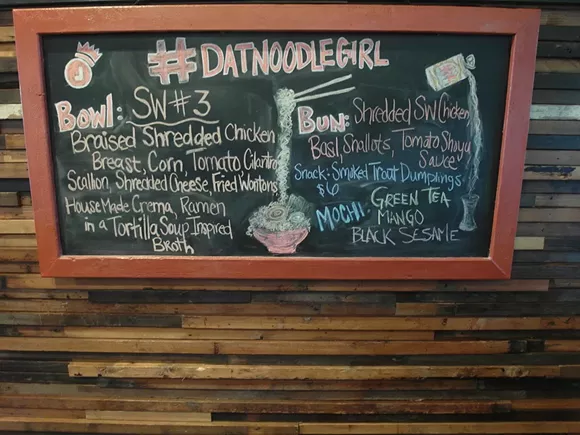 #DATNOODLEGIRL
Bowl: SW#3
Braised Shredded Chicken
Breast, Corn, Tomato Cilantro
Scallion, Shredded Cheese, Fried Wontons
House Made Crema, Ramen
in a Tortilla Soup Inspired
Broth
Bun: Shredded SW Chicken
Basil, Shallots, Tomato Shoyu
Sauce
Snack: Smoked Trout Dumplings
$6
Mochi: Green Tea
Mango
Black Sesame